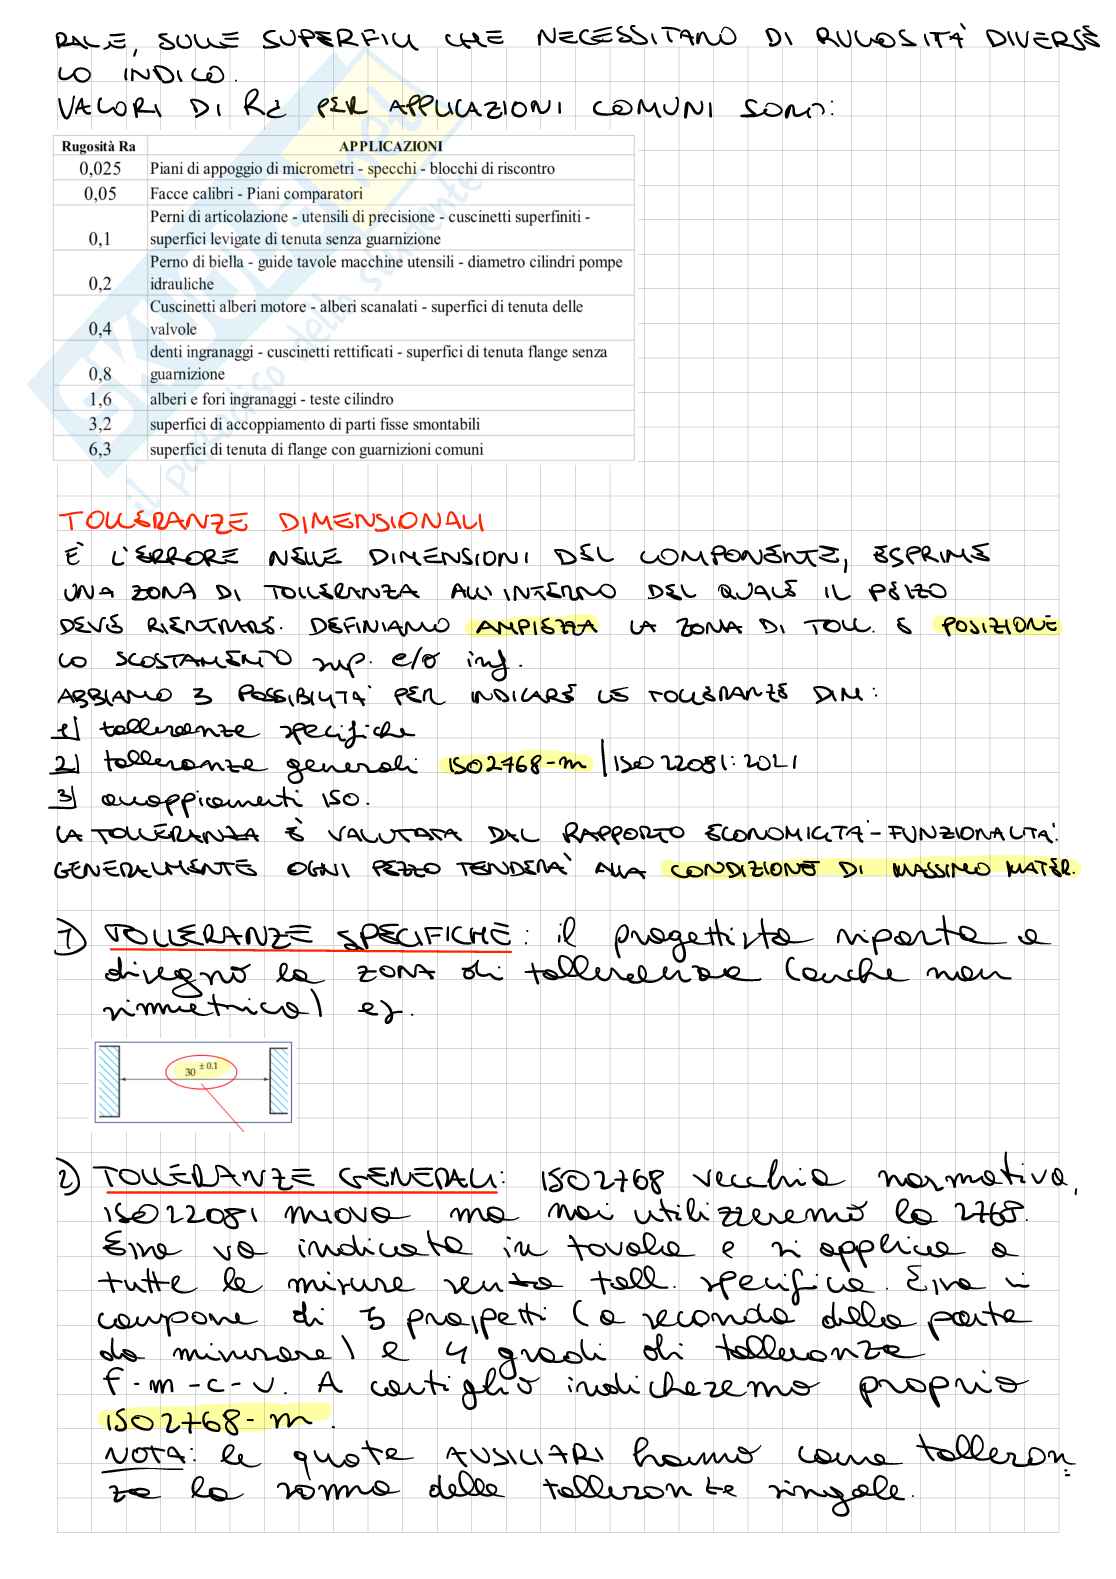 RALE, SULLE SUPERFICI CHE NECESSITANO DI RUGOSITÀ DIVERSE
LO INDICO.
VALORI DI Ra PER APPLICAZIONI COMUNI SONO:
Rugosità Ra APPLICAZIONI
0,025 Piani di appoggio di micrometri - specchi - blocchi di riscontro
0,05 Facce calibri - Piani comparatori
Perni di articolazione - utensili di precisione - cuscinetti superfiniti -
0,1 superfici levigate di tenuta senza guarnizione
Perno di biella - guide tavole macchine utensili - diametro cilindri pompe
0,2 idrauliche
Cuscinetti alberi motore - alberi scanalati - superfici di tenuta delle
0,4 valvole
denti ingranaggi - cuscinetti rettificati - superfici di tenuta flange senza
0,8 guarnizione
1,6 alberi e fori ingranaggi - teste cilindro
3,2 superfici di accoppiamento di parti fisse smontabili
6,3 superfici di tenuta di flange con guarnizioni comuni
TOLLERANZE DIMENSIONALI
È L'ERRORE NELLE DIMENSIONI DEL COMPONENTE, ESPRIME
UNA ZONA DI TOLLERANZA ALL'INTERNO DEL QUALE IL PEZZO
DEVE RIENTRARE. DEFINIAMO AMPIEZZA LA ZONA DI TOLL. E POSIZIONE
LO SCOSTAMENTO sup. e/o inf.
ABBIAMO 3 POSSIBILITA' PER INDICARE LE TOLLERANZE DIM:
1) tolleranze specifiche
2) tolleranze generali ISO2768-m | ISO 22081:2021
3) accoppiamenti ISO.
LA TOLLERANZA È VALUTATA DAL RAPPORTO ECONOMICITA'-FUNZIONALITA'.
GENERALMENTE OGNI PEZZO TENDERA' ALLA CONDIZIONE DI MASSIMO MATER.
1) TOLLERANZE SPECIFICHE: il progettista riporta a
disegno la ZONA di tolleranza (anche non
simmetrica) es.
30 ± 0.1
2) TOLLERANZE GENERALI: ISO2768 vecchia normativa,
ISO22081 nuova ma noi utilizzeremo la 2768.
Essa va indicata in tavola e si applica a
tutte le misure senza toll. specifica. Essa si
compone di 3 prospetti (a seconda della parte
da misurare) e 4 gradi di tolleranza
f-m-c-v. A cartiglio indicheremo proprio
ISO2768-m.
NOTA: le quote AUSILIARI hanno come tolleran
za la somma delle tolleranze singole.
SKUOLA.NET
il paradiso dello studente